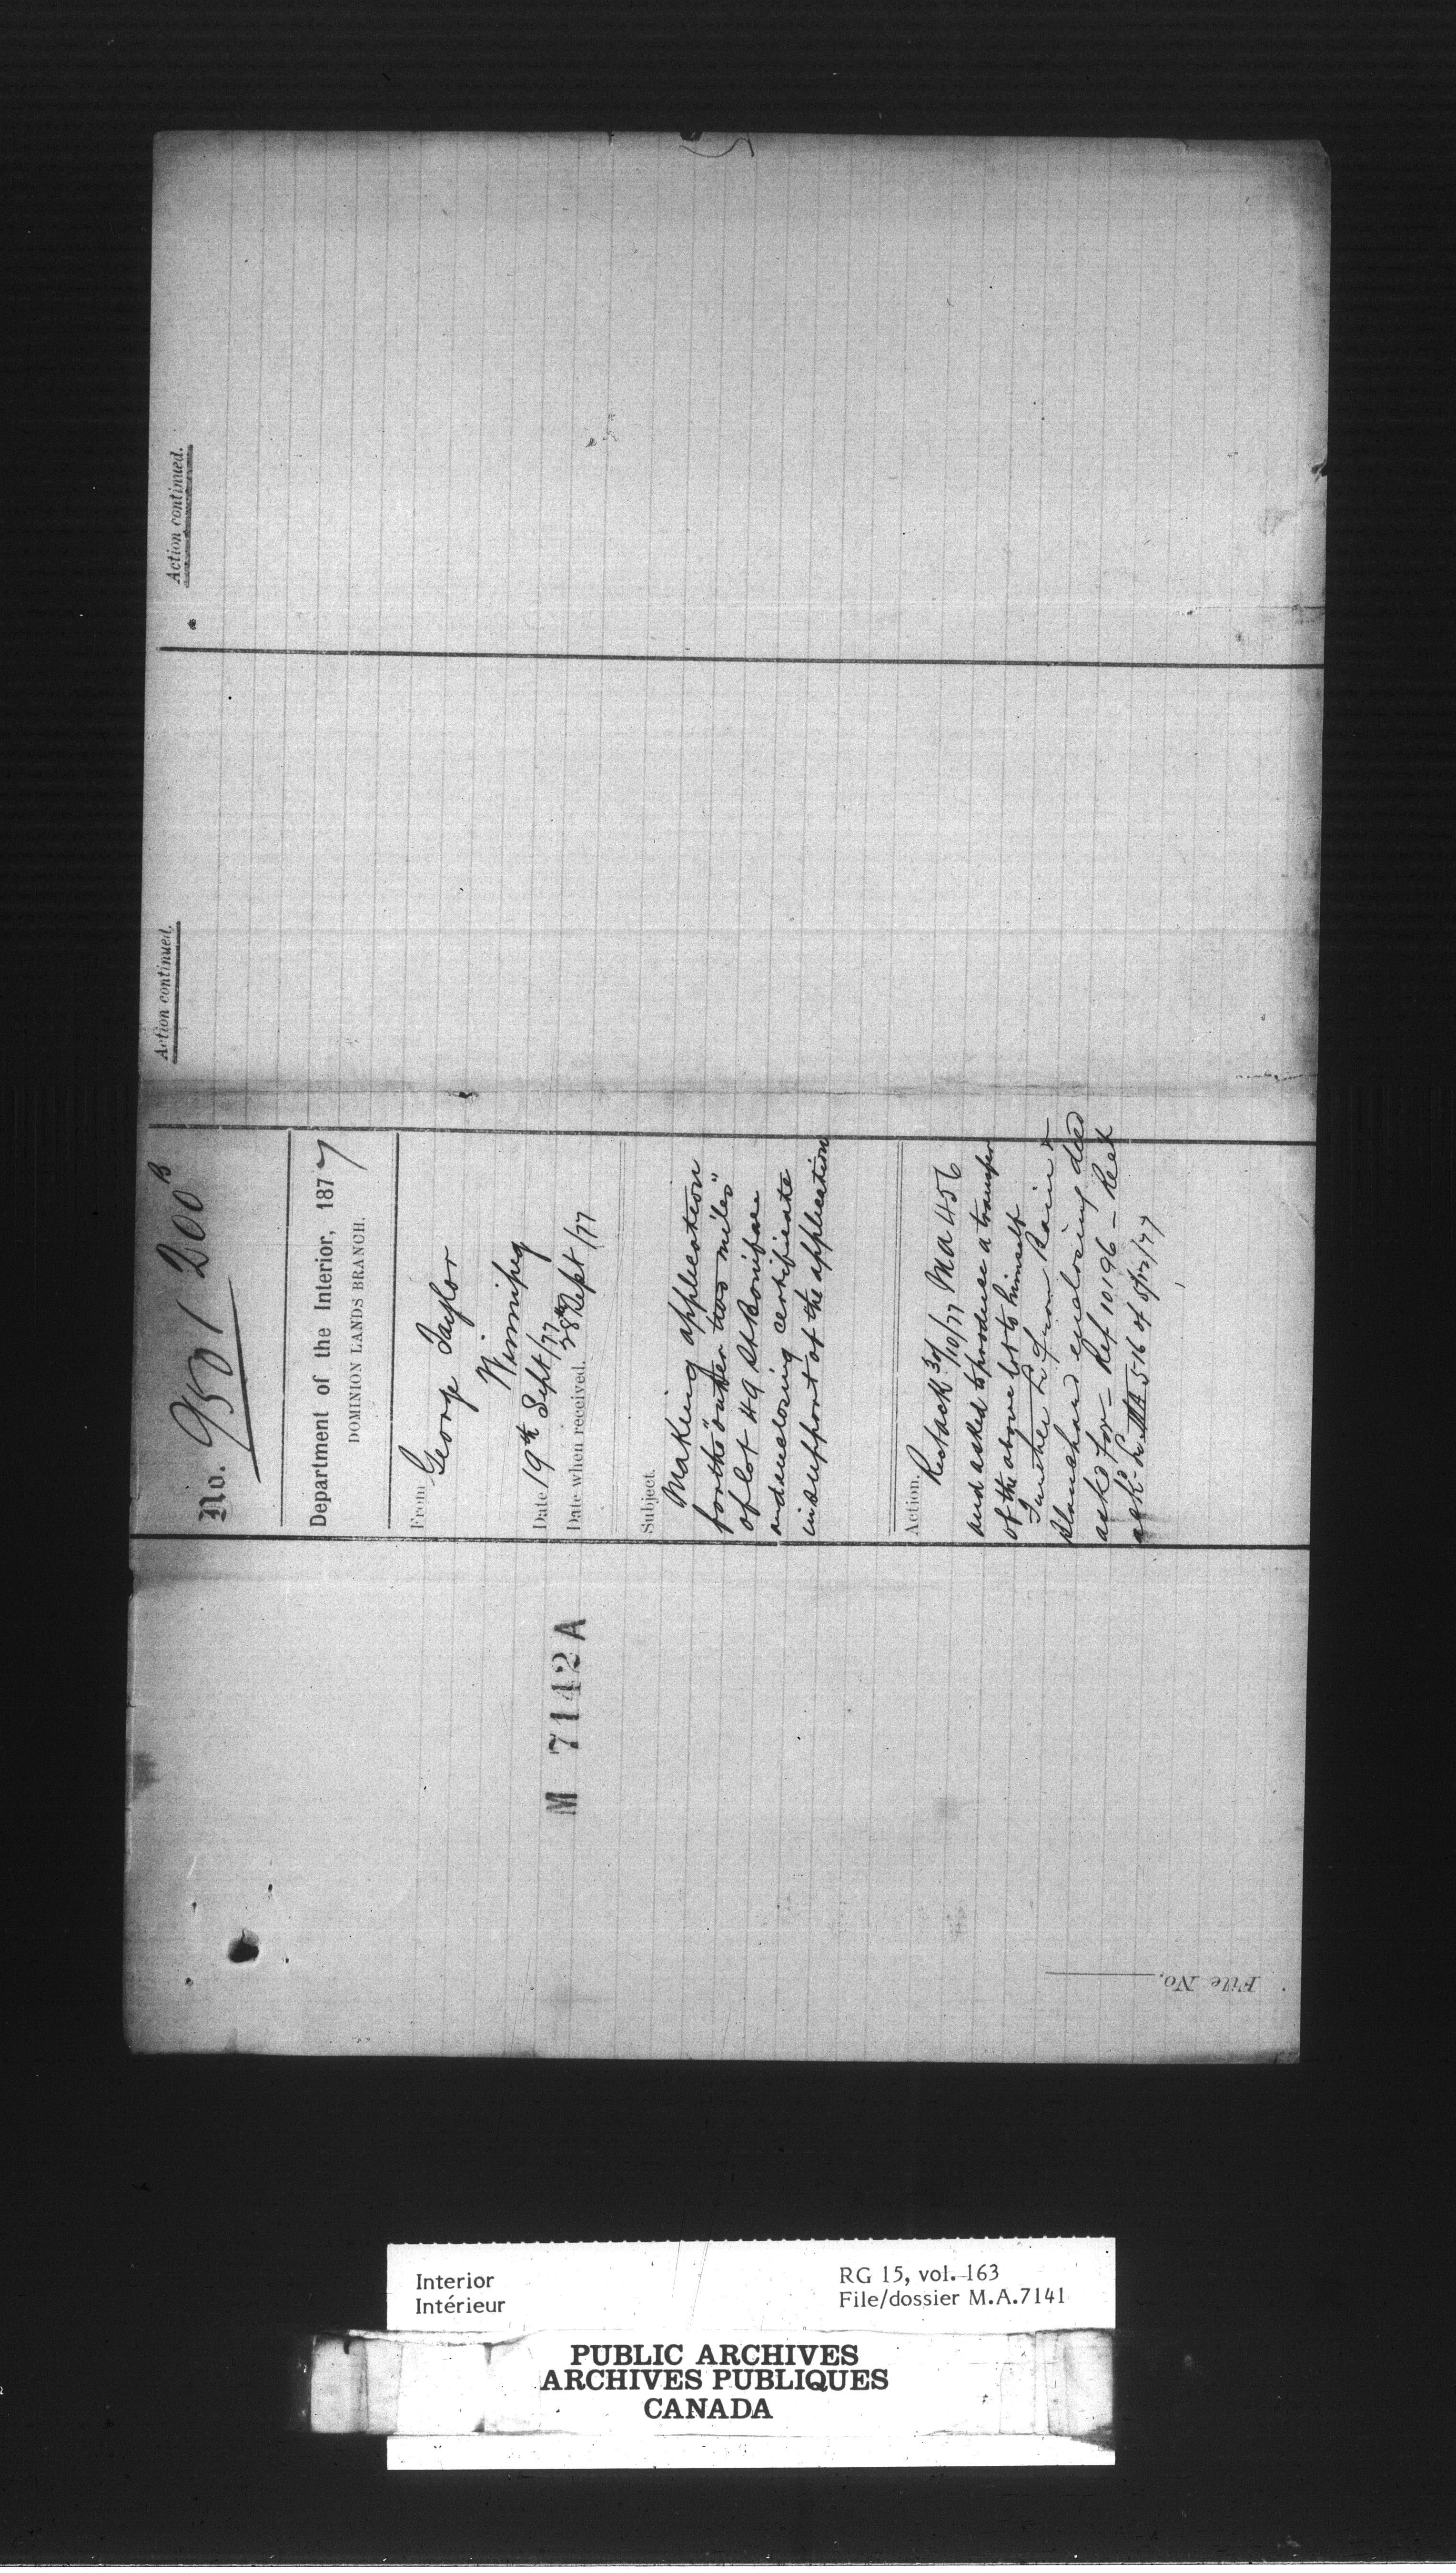 No. 9501 200 B
Department of the Interior, 1877
DOMINION LANDS BRANCH.
From George Taylor
Winnipeg
Date 19th Sept/77
Date when received. 28th Sept/77
Subject.
Making application
for the "outer two miles"
of lot 49 St Boniface
and enclosing certificate
in support of the application
Action.
10/77 MA 456
and asked to produce a transfer
of the above lot to himself
Further L from Bain &
Blanchard enclosing deed
asked for - Ref 10196 -
ack L MA 516 of
Action continued.
Action continued.
M 7142 A
File No.
Interior
Intérieur
RG 15, vol. 163
File/dossier M.A.7141
PUBLIC ARCHIVES
ARCHIVES PUBLIQUES
CANADA